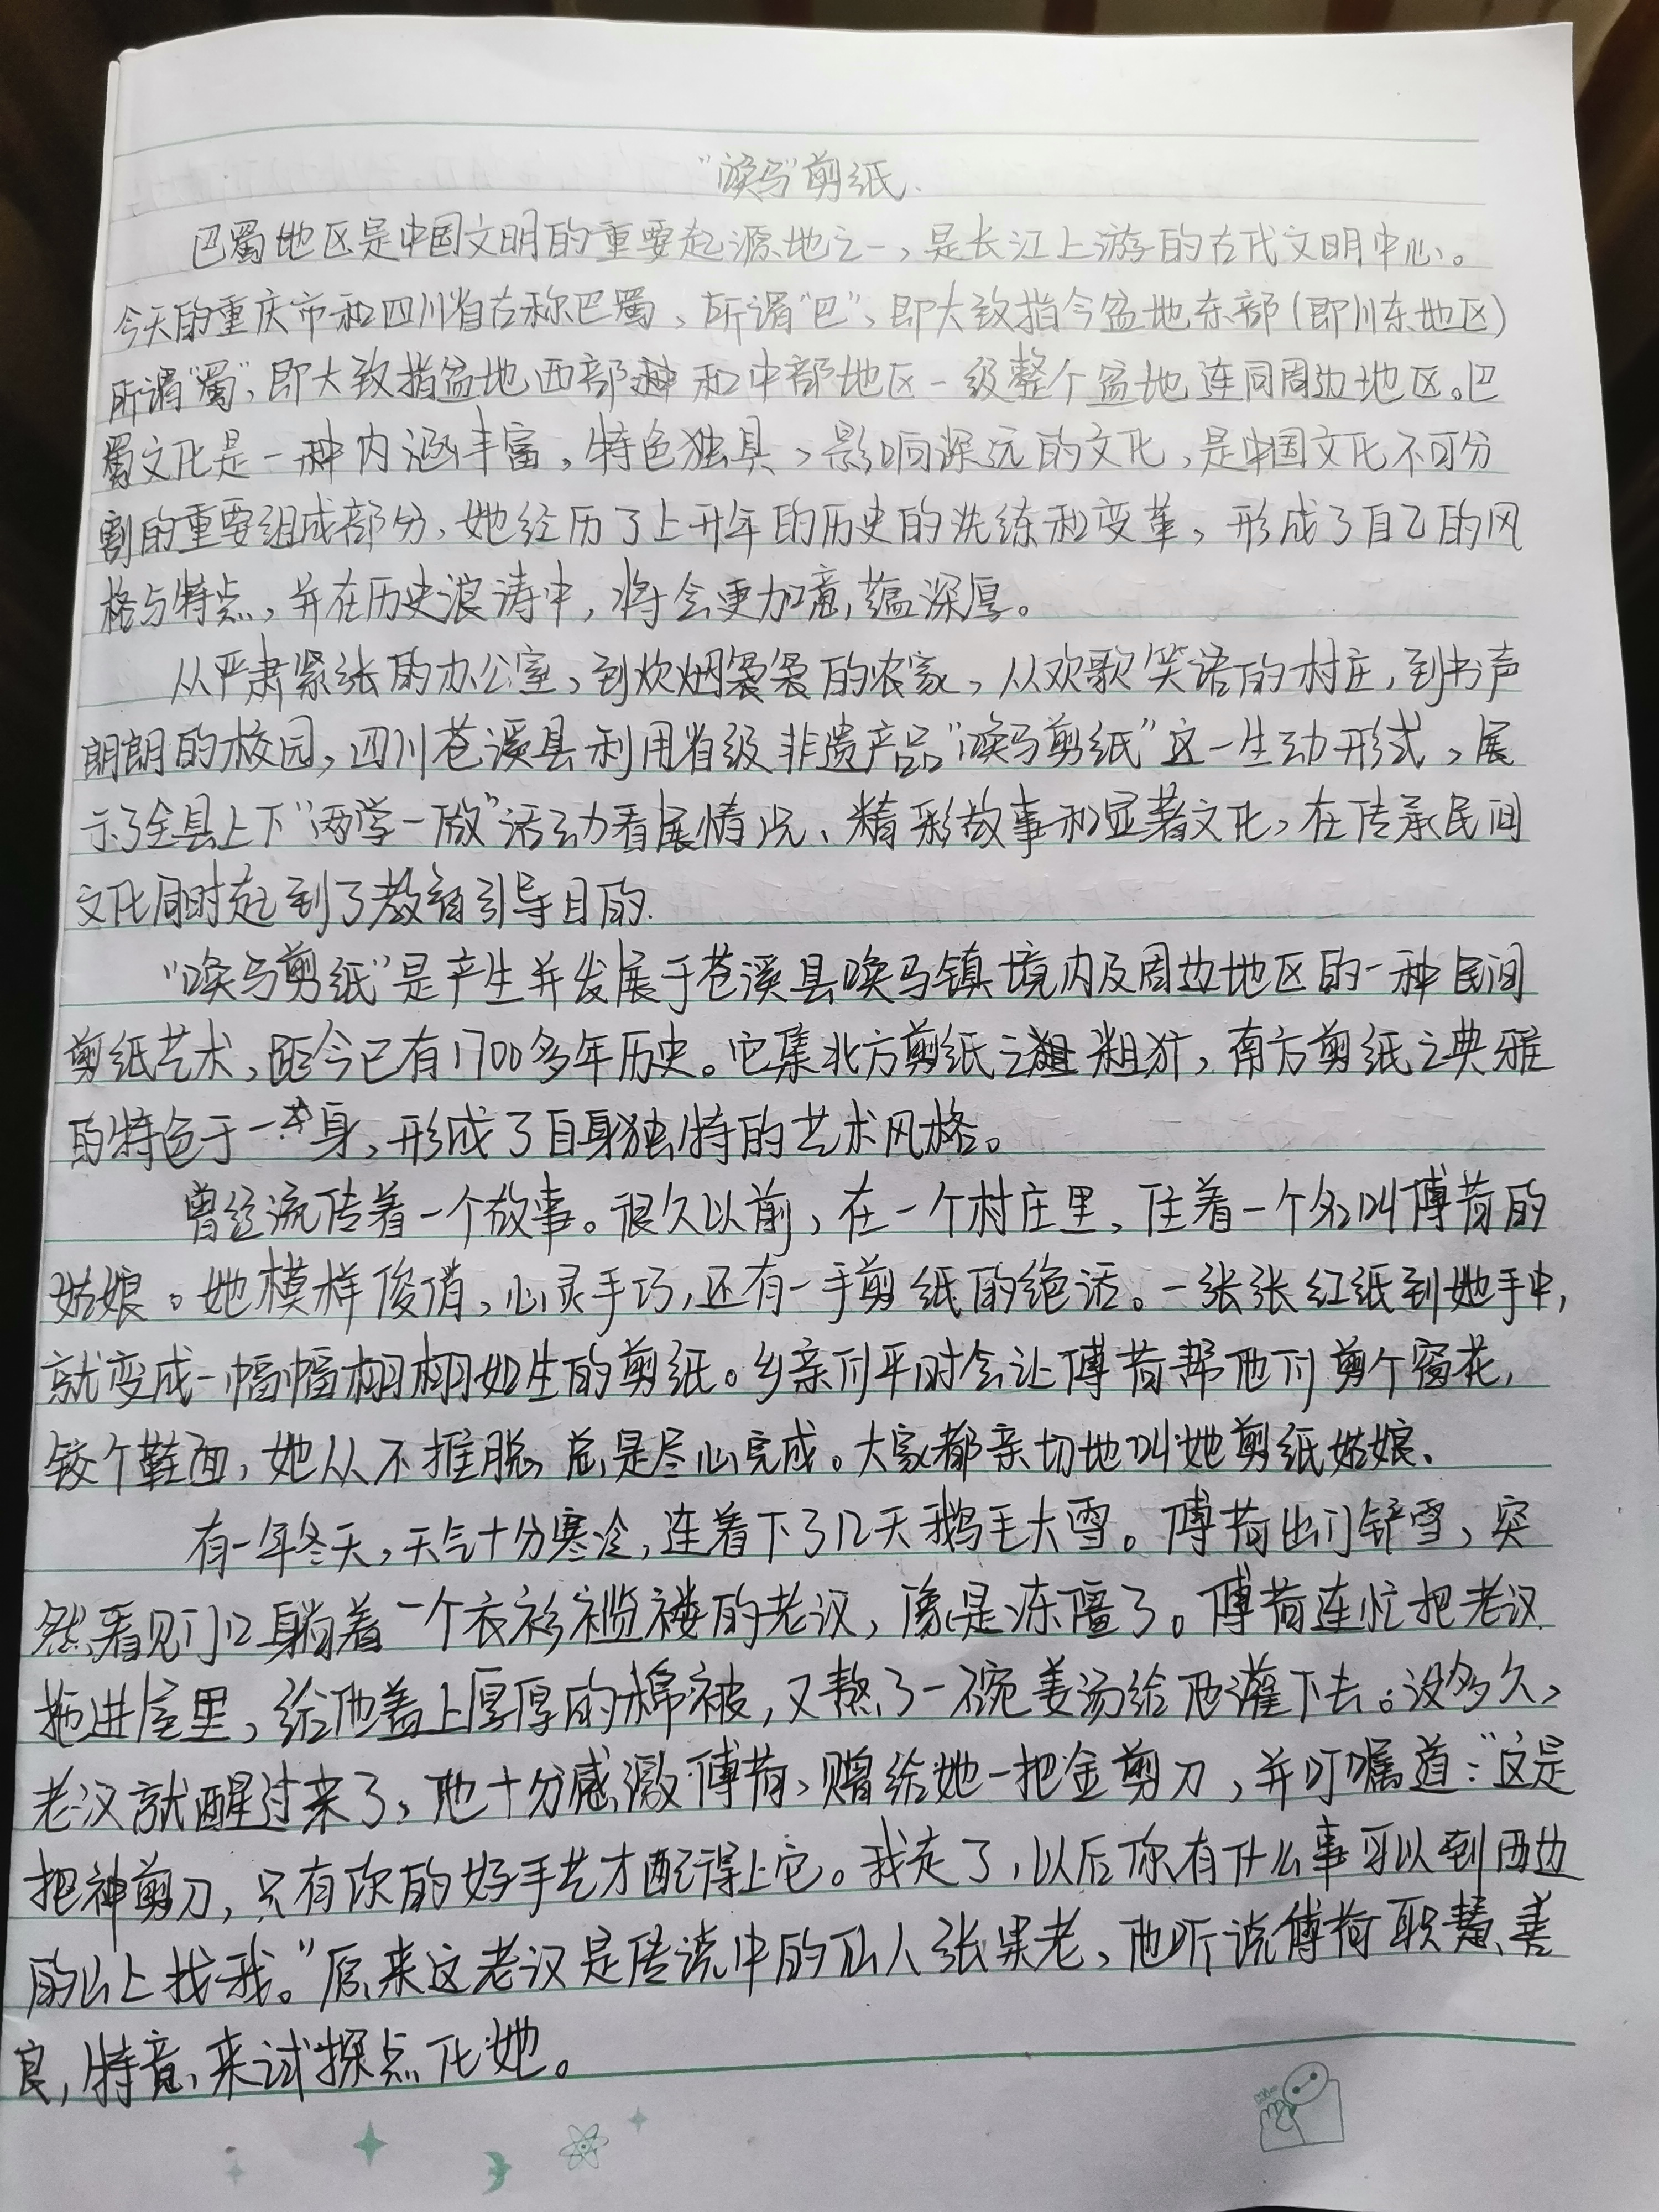 “唤马”剪纸.
巴蜀地区是中国文明的重要起源地之一，是长江上游的古代文明中心。
今天的重庆市和四川省古称巴蜀、所谓“巴”，即大致指今盆地东部（即川东地区）
所谓“蜀”，即大致指盆地西部和中部地区一级整个盆地连同周边地区。巴
蜀文化是一种内涵丰富，特色独具，影响深远的文化，是中国文化不可分
割的重要组成部分，她经历了上千年的历史的洗练和变革，形成了自己的风
格与特点，并在历史浪涛中，将会更加意蕴深厚。
从严肃紧张的办公室，到炊烟袅袅的农家，从欢歌笑语的村庄，到书声
朗朗的校园，四川苍溪县利用省级非遗产品“唤马剪纸”这一生动形式，展
示了全县上下“两学一做”活动看展情况、精彩故事和显著文化，在传承民间
文化同时起到了教育引导目的.
“唤马剪纸”是产生并发展于苍溪县唤马镇境内及周边地区的一种民间
剪纸艺术，距今已有1700多年历史。它集北方剪纸之粗犷，南方剪纸之典雅
的特色于一身，形成了自身独特的艺术风格。
曾经流传着一个故事。很久以前，在一个村庄里，住着一个名叫傅荷的
姑娘。她模样俊俏，心灵手巧，还有一手剪纸的绝活。一张张红纸到她手中，
就变成一幅幅栩栩如生的剪纸。乡亲们平时会让傅荷帮他们剪个窗花，
铰个鞋面，她从不推脱，总是尽心完成。大家都亲切地叫她剪纸姑娘.
有一年冬天，天气十分寒冷，连着下了12天鹅毛大雪。傅荷出门铲雪，突
然看见门口躺着一个衣衫褴褛的老汉，像是冻僵了。傅荷连忙把老汉
拖进屋里，给他盖上厚厚的棉被，又熬了一碗姜汤给他灌下去。没多久，
老汉就醒过来了，他十分感激傅荷，赠给她一把金剪刀，并叮嘱道：“这是
把神剪刀，只有你的好手艺才配得上它。我走了，以后你有什么事可以到西边
的山上找我。”原来这老汉是传说中的仙人张果老，他听说傅荷聪慧善
良，特意来试探点化她。